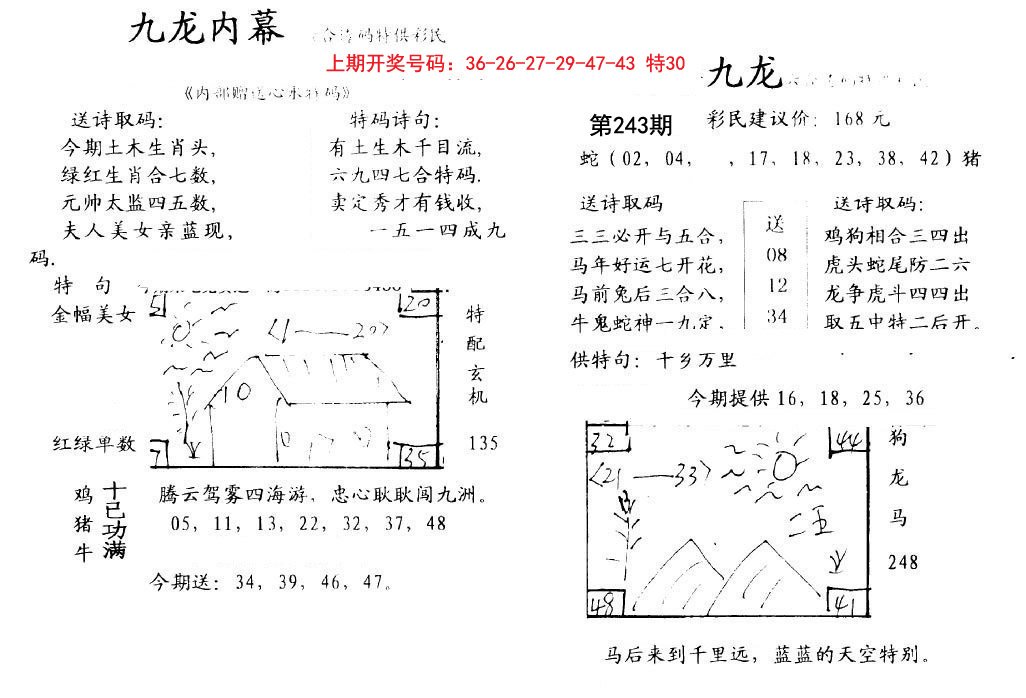 九龙内幕
上期开奖号码：36-26-27-29-47-43 特30
送诗取码：
今期土木生肖头，
绿红生肖合七数，
元帅太监四五数，
夫人美女亲蓝现，
码.
特码诗句：
有土生木千目流，
六九四七合特码.
卖定秀才有钱收，
一五一四成九
特 句
金幅美女
红绿单数
5
20
〈1——20〉
10
7
35
特
配
玄
机
135
鸡
猪
牛
十己功满
腾云驾雾四海游，忠心耿耿闯九洲。
05，11，13，22，32，37，48
今期送：34，39，46，47。
九龙
第243期
彩民建议价：168元
蛇（02，04， ，17，18，23，38，42）猪
送诗取码
三三必开与五合，
马年好运七开花，
马前兔后三合八，
牛鬼蛇神一九定，
送
08
12
34
送诗取码：
鸡狗相合三四出
虎头蛇尾防二六
龙争虎斗四四出
取五中特二后开。
供特句：十乡万里
今期提供16，18，25，36
32
44
〈21——33〉
二五
48
41
狗
龙
马
248
马后来到千里远，蓝蓝的天空特别。